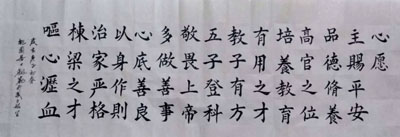 心愿
主賜平安
品德修養
高官之位
培養教育
有用之才
教子有方
五子登科
敬畏上帝
多做善事
心底善良
以身作則
治家严格
棟梁之才
嘔心瀝血